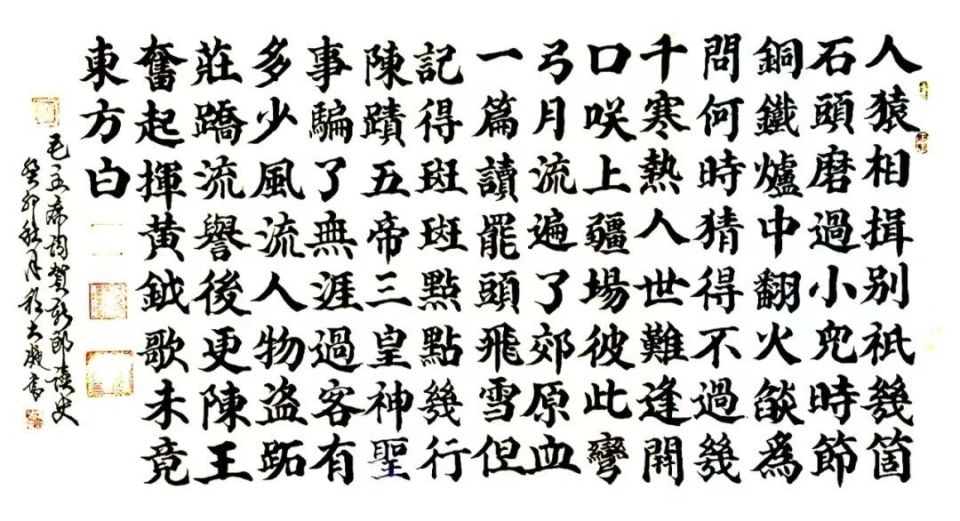 人猿相揖别祇幾箇
石頭磨過小兒時節
銅鐵爐中翻火燄為
問何時猜得不過幾
千寒熱人世難逢開
口咲上疆場彼此彎
弓月流遍了郊原血
一篇讀罷頭飛雪但
記得斑斑點點幾行
陳蹟五帝三皇神聖
事騙了無涯過客有
多少風流人物盜跖
莊蹻流譽後更陳王
奮起揮黃鉞歌未竟
東方白
毛主席詞賀新郎讀史
癸卯秋月